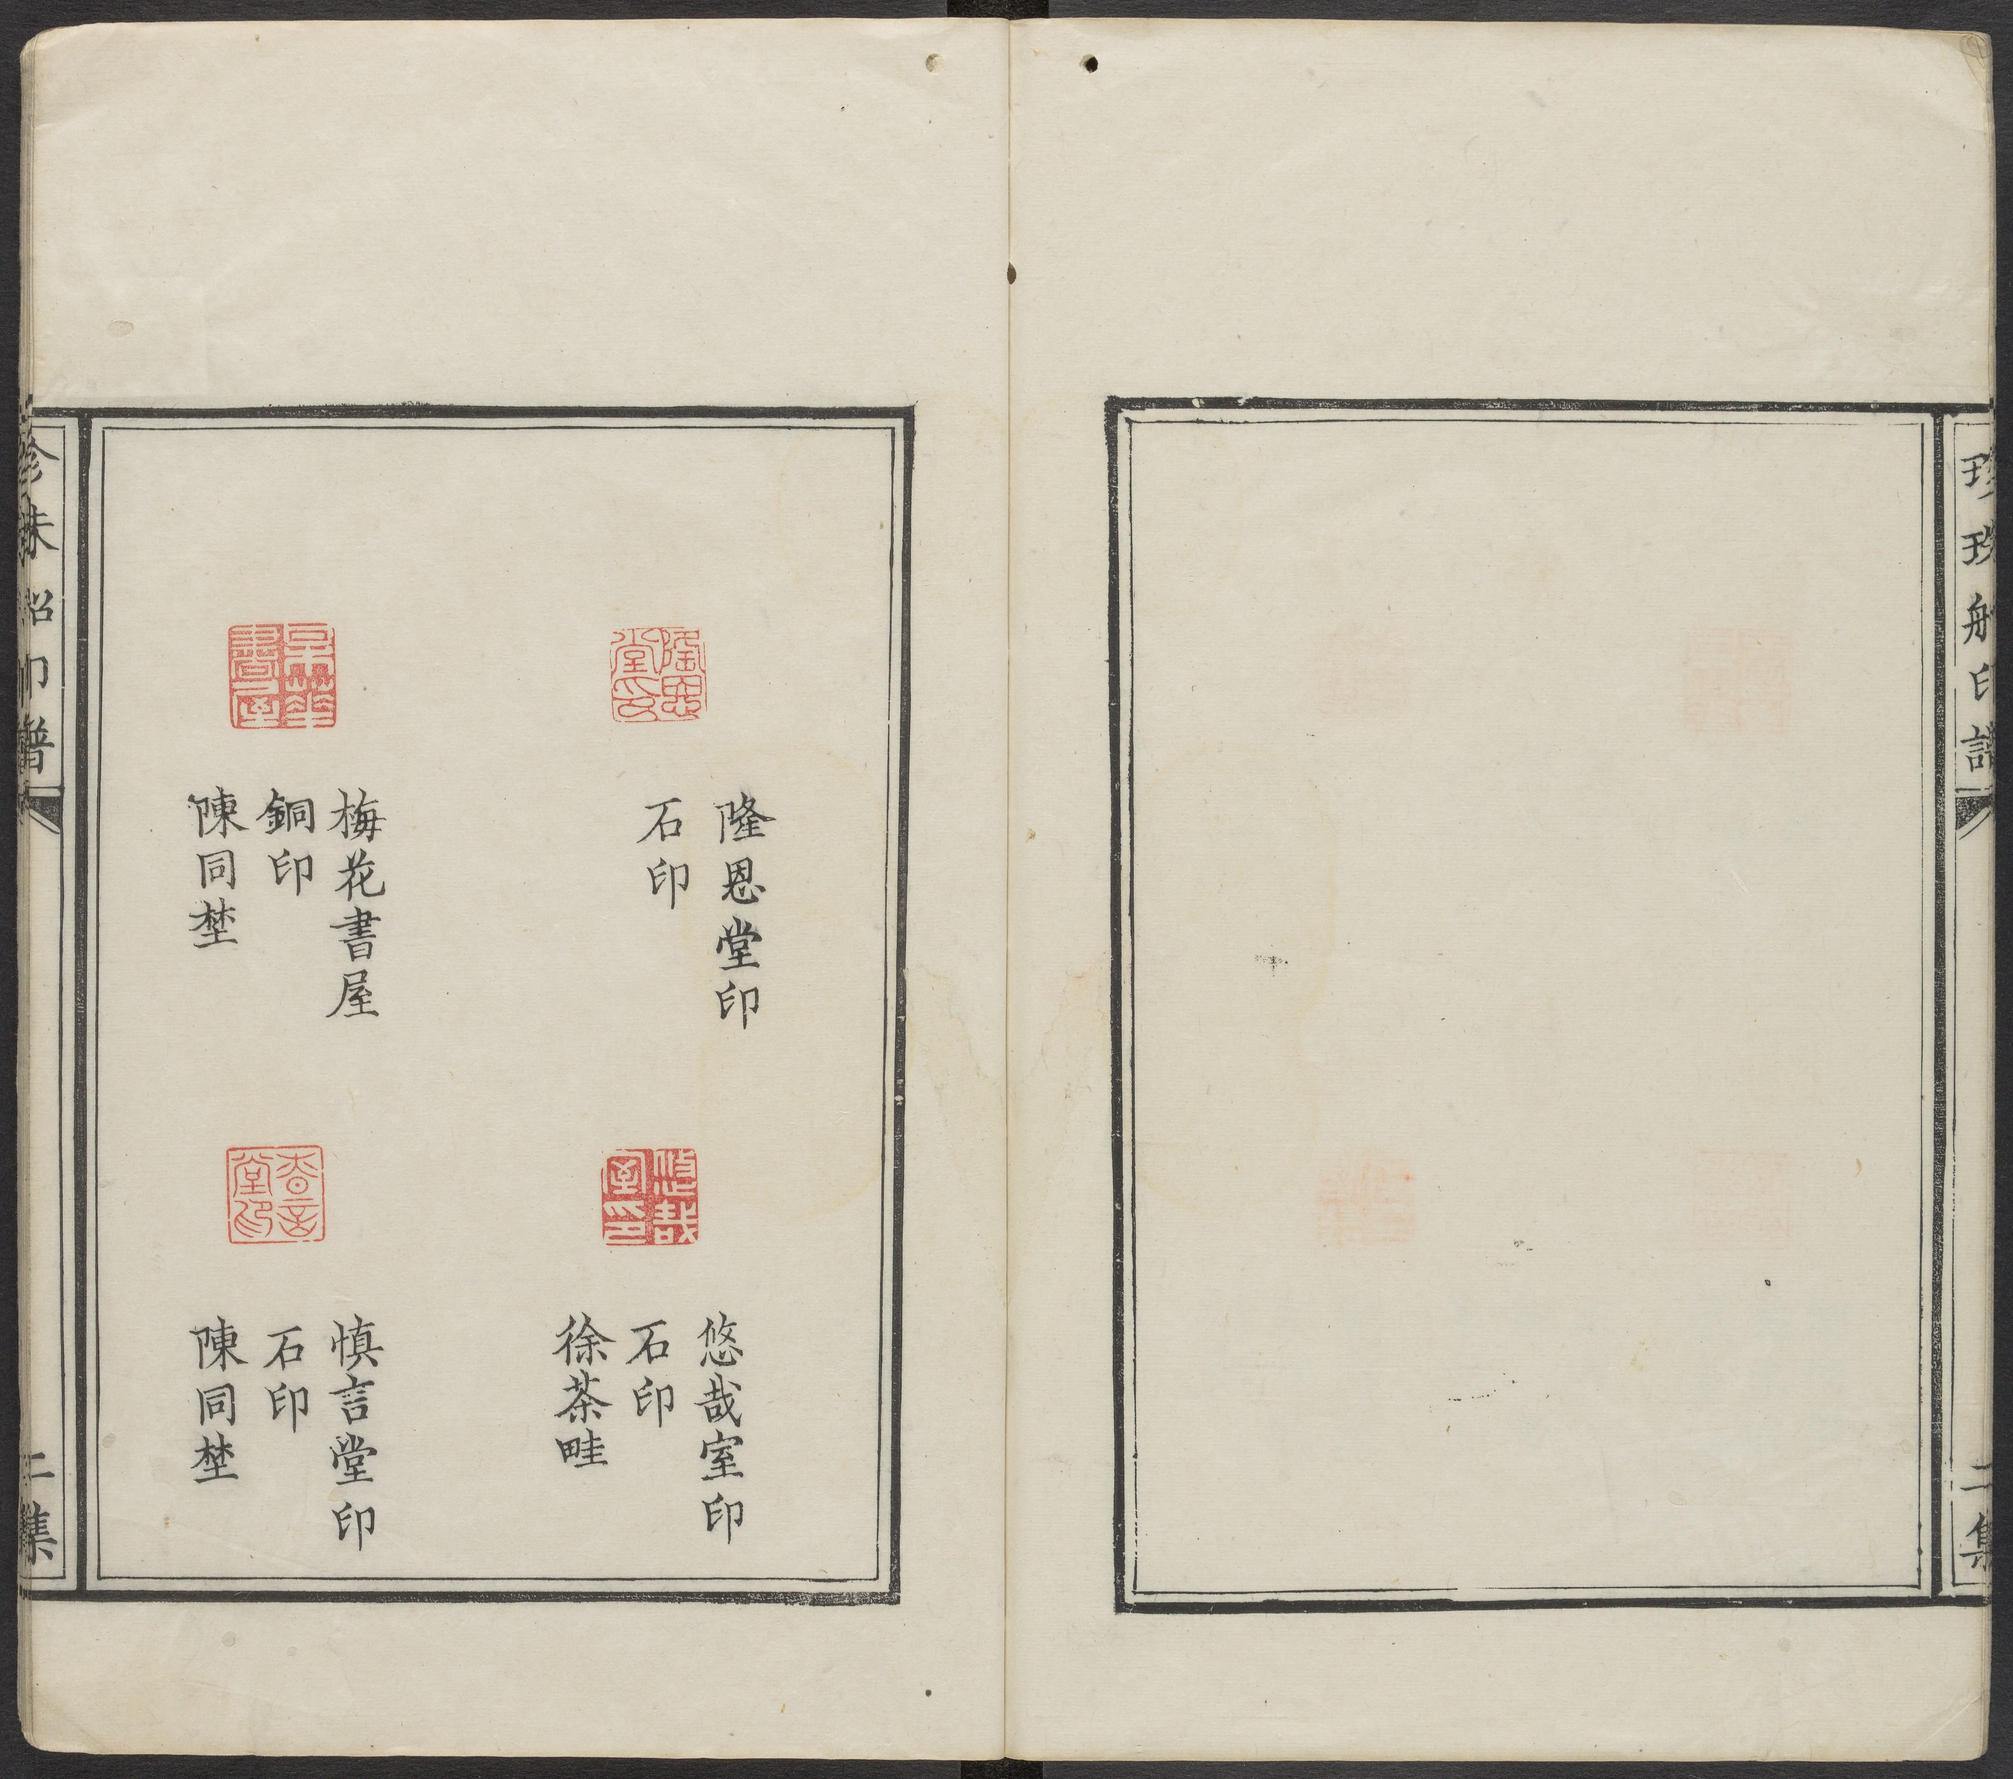 珍珠船印譜
二集
隆恩堂印
隆恩堂印
石印
悠哉室印
悠哉室印
石印
徐茶畦
梅花書屋
銅印
陳同埜
慎言堂印
石印
陳同埜
珍珠船印譜
二集